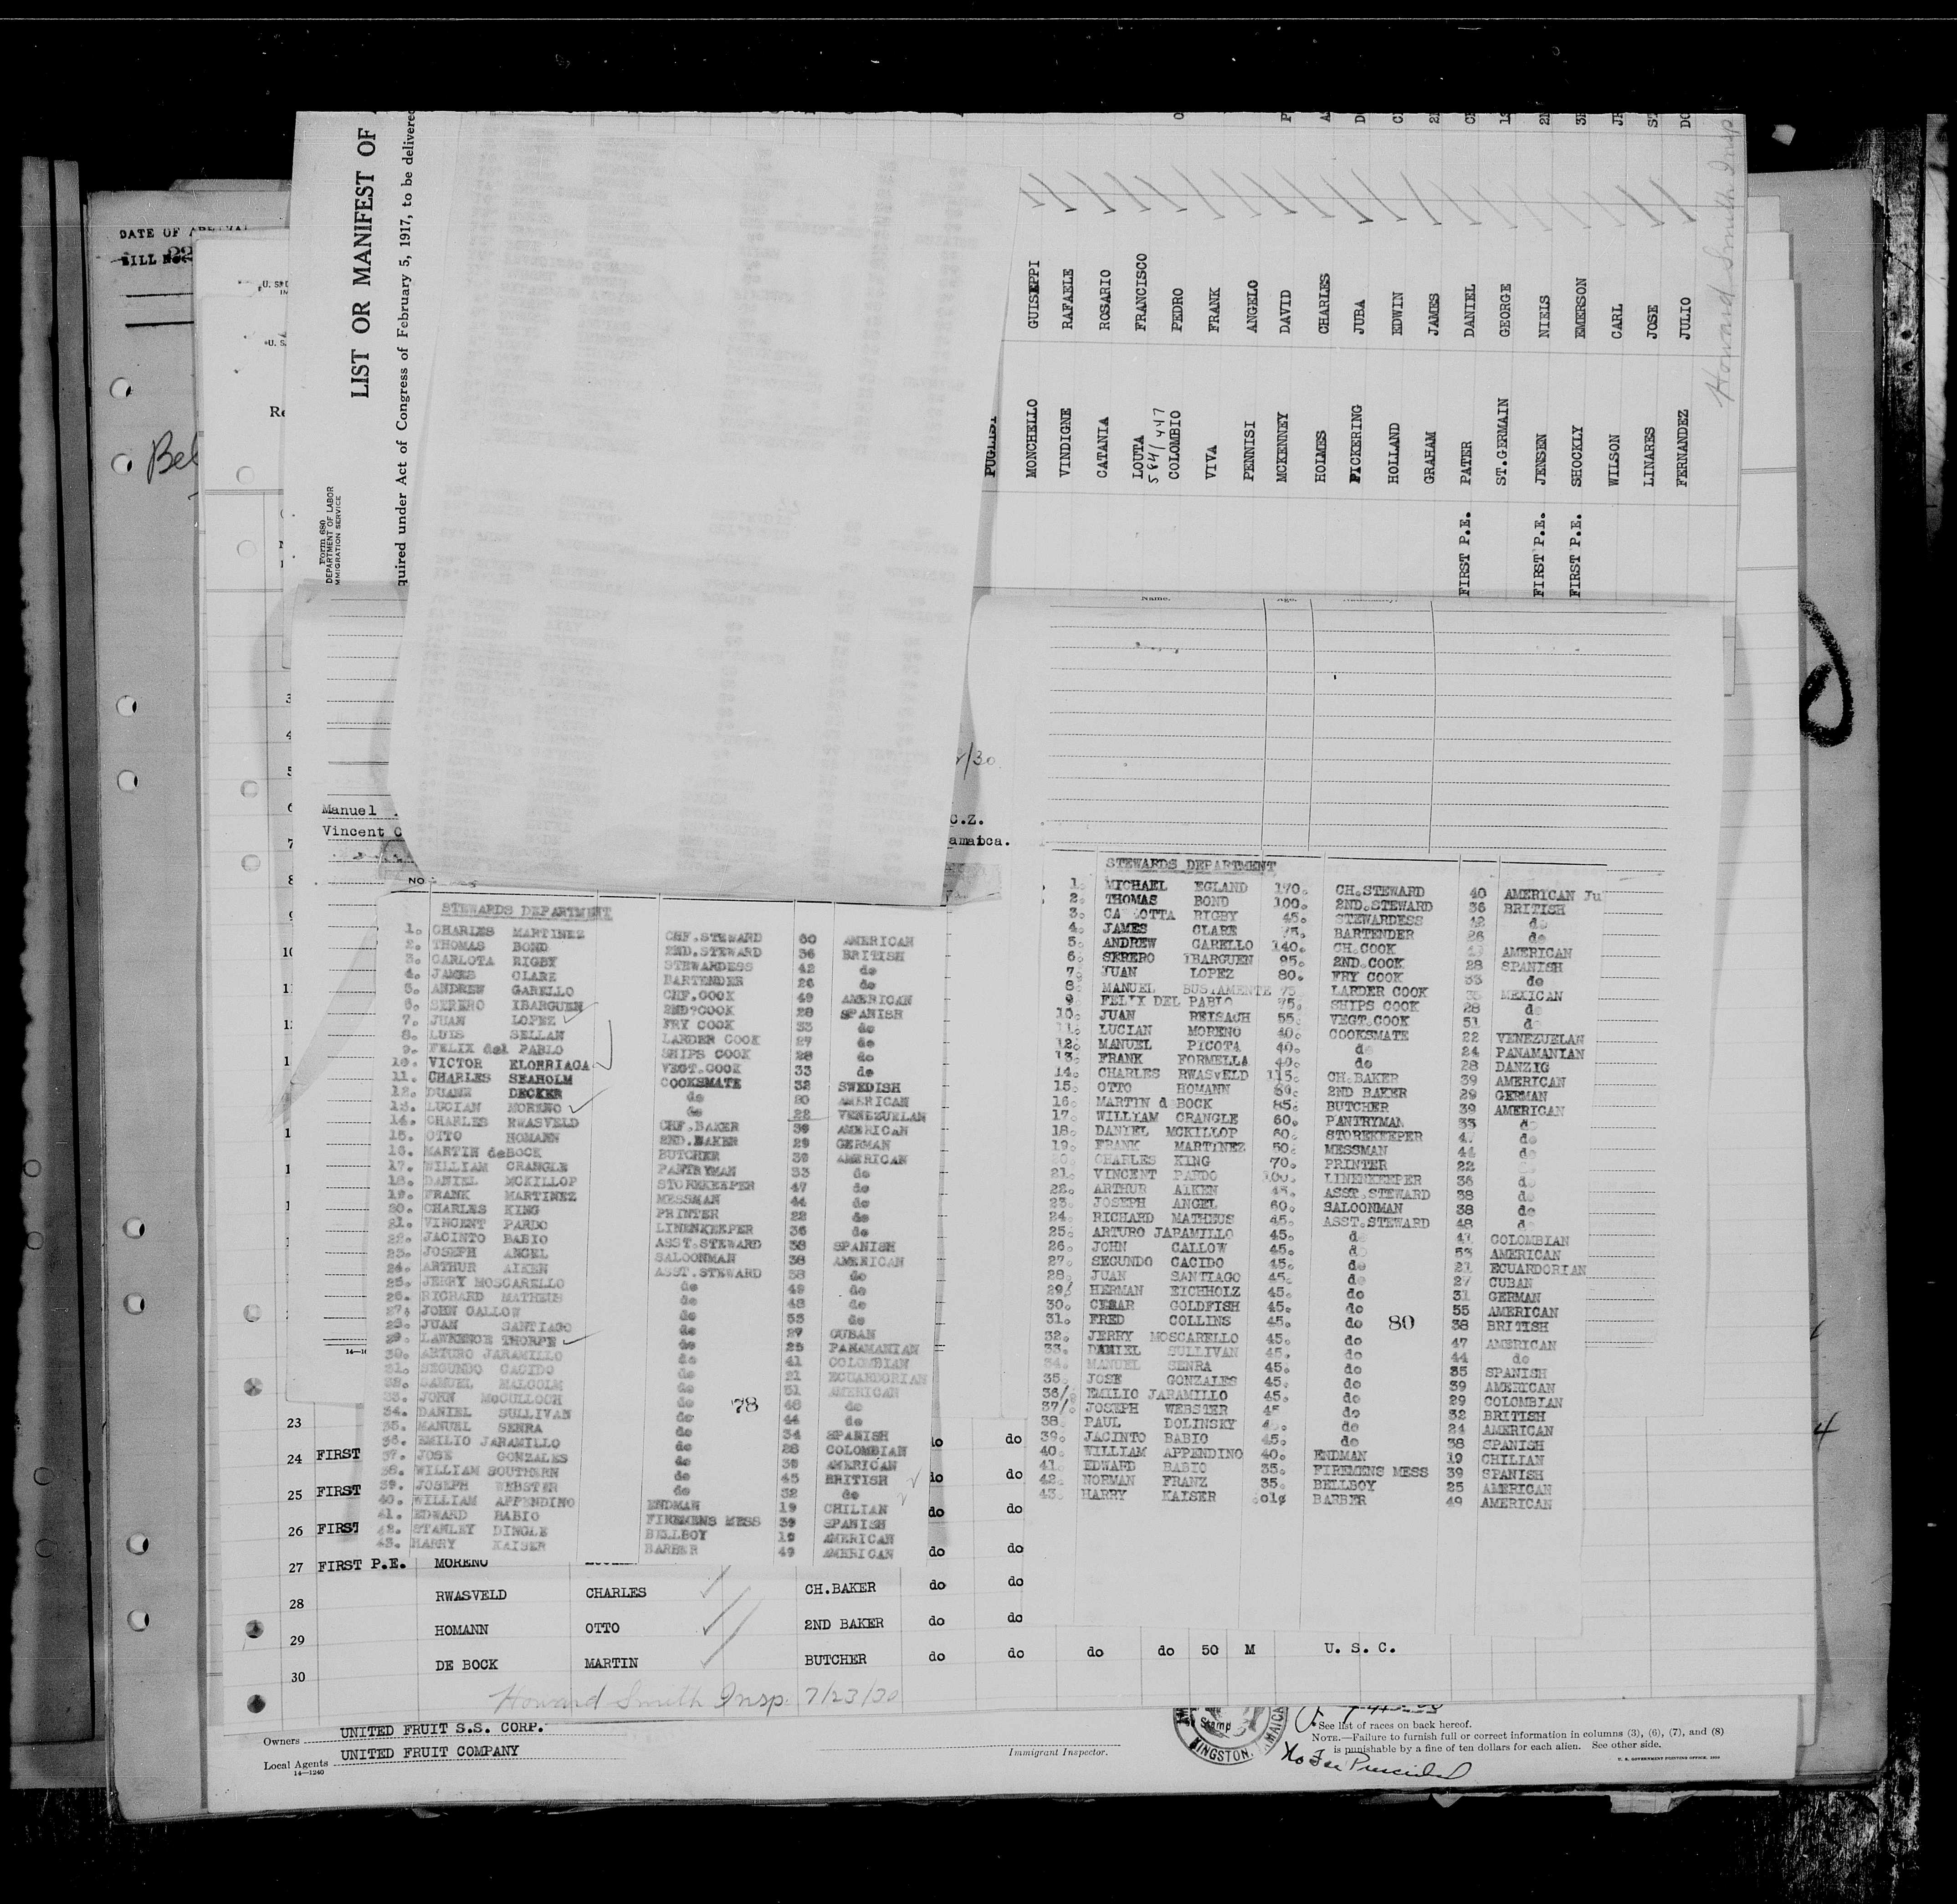 DATE OF
BILL No.
Bel
LIST OR MANIFEST OF
quired under Act of Congress of February 5, 1917, to be delivered
Form 680
DEPARTMENT OF LABOR
IMMIGRATION SERVICE
MONCHELLO GUISEPPI
VINDIGNE RAFAELE
CATANIA ROSARIO
LOUTA FRANCISCO
584/447
COLOMBIO PEDRO
VIVA FRANK
PENNISI ANGELO
MCKENNEY DAVID
HOLMES CHARLES
PICKERING JUBA
HOLLAND EDWIN
GRAHAM JAMES
FIRST P.E. PATER DANIEL
ST.GERMAIN GEORGE
FIRST P.E. JENSEN NIELS
FIRST P.E. SHOCKLY EMERSON
WILSON CARL
LINARES JOSE
FERNANDEZ JULIO
Howard Smith Insp
Name. Age.
Manuel
Vincent C
C.Z.
amaica.
NO
STEWARDS DEPARTMENT
1. CHARLES MARTINEZ CHF.STEWARD 60 AMERICAN
2. THOMAS BOND 2ND.STEWARD 36 BRITISH
3. CARLOTA RIGBY STEWARDESS 42 do
4. JAMES CLARE BARTENDER 26 do
5. ANDREW GARELLO CHF.COOK 49 AMERICAN
6. SERERO IBARGUEN 2ND.COOK 28 SPANISH
7. JUAN LOPEZ FRY COOK 33 do
8. LUIS SELLAN LARDER COOK 27 do
9. FELIX del PABLO SHIPS COOK 28 do
10. VICTOR ELORRIAGA VEGT.COOK 33 do
11. CHARLES SEAHOLM COOKSMATE 32 SWEDISH
12. DUANE DECKER do 20 AMERICAN
13. LUCIAN MORENO do 22 VENEZUELAN
14. CHARLES RWASVELD CHF.BAKER 39 AMERICAN
15. OTTO HOMANN 2ND.BAKER 29 GERMAN
16. MARTIN deBOCK BUTCHER 39 AMERICAN
17. WILLIAM CRANGLE PANTRYMAN 33 do
18. DANIEL MCKILLOP STOREKEEPER 47 do
19. FRANK MARTINEZ MESSMAN 44 do
20. CHARLES KING PRINTER 22 do
21. VINCENT PARDO LINENKEEPER 36 do
22. JACINTO BABIO ASST.STEWARD 38 SPANISH
23. JOSEPH ANGEL SALOONMAN 38 AMERICAN
24. ARTHUR AIKEN ASST.STEWARD 38 do
25. JERRY MOSCARELLO do 49 do
26. RICHARD MATHEUS do 48 do
27. JOHN CALLOW do 53 do
28. JUAN SANTIAGO do 27 CUBAN
29. LAWRENCE THORPE do 25 PANAMANIAN
30. ARTURO JARAMILLO do 41 COLOMBIAN
31. SEGUNDO CACIDO do 21 ECUARDORIAN
32. SAMUEL MALCOLM do 51 AMERICAN
33. JOHN McCULLOCH do 78 48 do
34. DANIEL SULLIVAN do 44 do
35. MANUEL SENRA do 34 SPANISH
36. EMILIO JARAMILLO do 28 COLOMBIAN
37. JOSE GONZALES do 39 AMERICAN
38. WILLIAM SOUTHERN do 45 BRITISH
39. JOSEPH WEBSTER do 32 do
40. WILLIAM APPENDINO ENDMAN 19 CHILIAN
41. EDWARD BABIO FIREMENS MESS 39 SPANISH
42. STANLEY DINGLE BELLBOY 19 AMERICAN
43. HARRY KAISER BARBER 49 AMERICAN
STEWARDS DEPARTMENT
1. MICHAEL EGLAND 170. CH.STEWARD 40 AMERICAN Ju
2. THOMAS BOND 100. 2ND.STEWARD 36 BRITISH
3. CA OTTA RIGBY 45. STEWARDESS 42 do
4. JAMES CLARE 75. BARTENDER 26 do
5. ANDREW GARELLO 140. CH.COOK 49 AMERICAN
6. SERERO IBARGUEN 95. 2ND.COOK 28 SPANISH
7. JUAN LOPEZ 80. FRY COOK 33 do
8. MANUEL BUSTAMENTE 75 LARDER COOK MEXICAN
9. FELIX DEL PABLO 75. SHIPS COOK 28 do
10. JUAN REISACH 55. VEGT.COOK 51 do
11. LUCIAN MORENO 40. COOKSMATE 22 VENEZUELAN
12. MANUEL PICOTA 40. do 24 PANAMANIAN
13. FRANK FORMELLA 40. do 28 DANZIG
14. CHARLES RWASVELD 115. CH.BAKER 39 AMERICAN
15. OTTO HOMANN 2ND BAKER 29 GERMAN
16. MARTIN d BOCK 85. BUTCHER 39 AMERICAN
17. WILLIAM CRANGLE 60. PANTRYMAN 33 do
18. DANIEL MCKILLOP 60. STOREKEEPER 47 do
19. FRANK MARTINEZ 50. MESSMAN 44 do
20. CHARLES KING 70. PRINTER 22 do
21. VINCENT PARDO LINENKEEPER 36 do
22. ARTHUR AIKEN 45. ASST.STEWARD 38 do
23. JOSEPH ANGEL 60. SALOONMAN 38 do
24. RICHARD MATHEUS 45. ASST.STEWARD 48 do
25. ARTURO JARAMILLO 45. do 41 COLOMBIAN
26. JOHN CALLOW 45. do 53 AMERICAN
27. SEGUNDO CACIDO 45. do 21 ECUARDORIAN
28. JUAN SANTIAGO 45. do 27 CUBAN
29/ HERMAN EICHHOLZ 45. do 31 GERMAN
30. CESAR GOLDFISH 45. do 55 AMERICAN
31. FRED COLLINS 45. do 80 38 BRITISH
32. JERRY MOSCARELLO 45. do 47 AMERICAN
33. DANIEL SULLIVAN 45. do 44 do
34. MANUEL SENRA 45. do 35 SPANISH
35. JOSE GONZALES 45. do 39 AMERICAN
36/. EMILIO JARAMILLO 45. do 29 COLOMBIAN
37/. JOSEPH WEBSTER 45 do 32 BRITISH
38. PAUL DOLINSKY do 24 AMERICAN
39. JACINTO BABIO 45. do 38 SPANISH
40. WILLIAM APPENDINO 40. ENDMAN 19 CHILIAN
41. EDWARD BABIO 35. FIREMENS MESS 39 SPANISH
42. NORMAN FRANZ 35. BELLBOY 25 AMERICAN
43. HARRY KAISER BARBER 49 AMERICAN
23
24 FIRST do do
25 FIRST do do
26 FIRST do do
27 FIRST P.E. MORENO do do
28 RWASVELD CHARLES CH.BAKER do do
29 HOMANN OTTO 2ND BAKER do do
30 DE BOCK MARTIN BUTCHER do do do do 50 M U. S. C.
Howard Smith Insp. 7/23/30
Owners UNITED FRUIT S.S. CORP.
Local Agents UNITED FRUIT COMPANY
14—1240
Immigrant Inspector.
Stamp
KINGSTON, JAMAICA
See list of races on back hereof.
NOTE.—Failure to furnish full or correct information in columns (3), (6), (7), and (8)
is punishable by a fine of ten dollars for each alien. See other side.
No Fee Prescribed